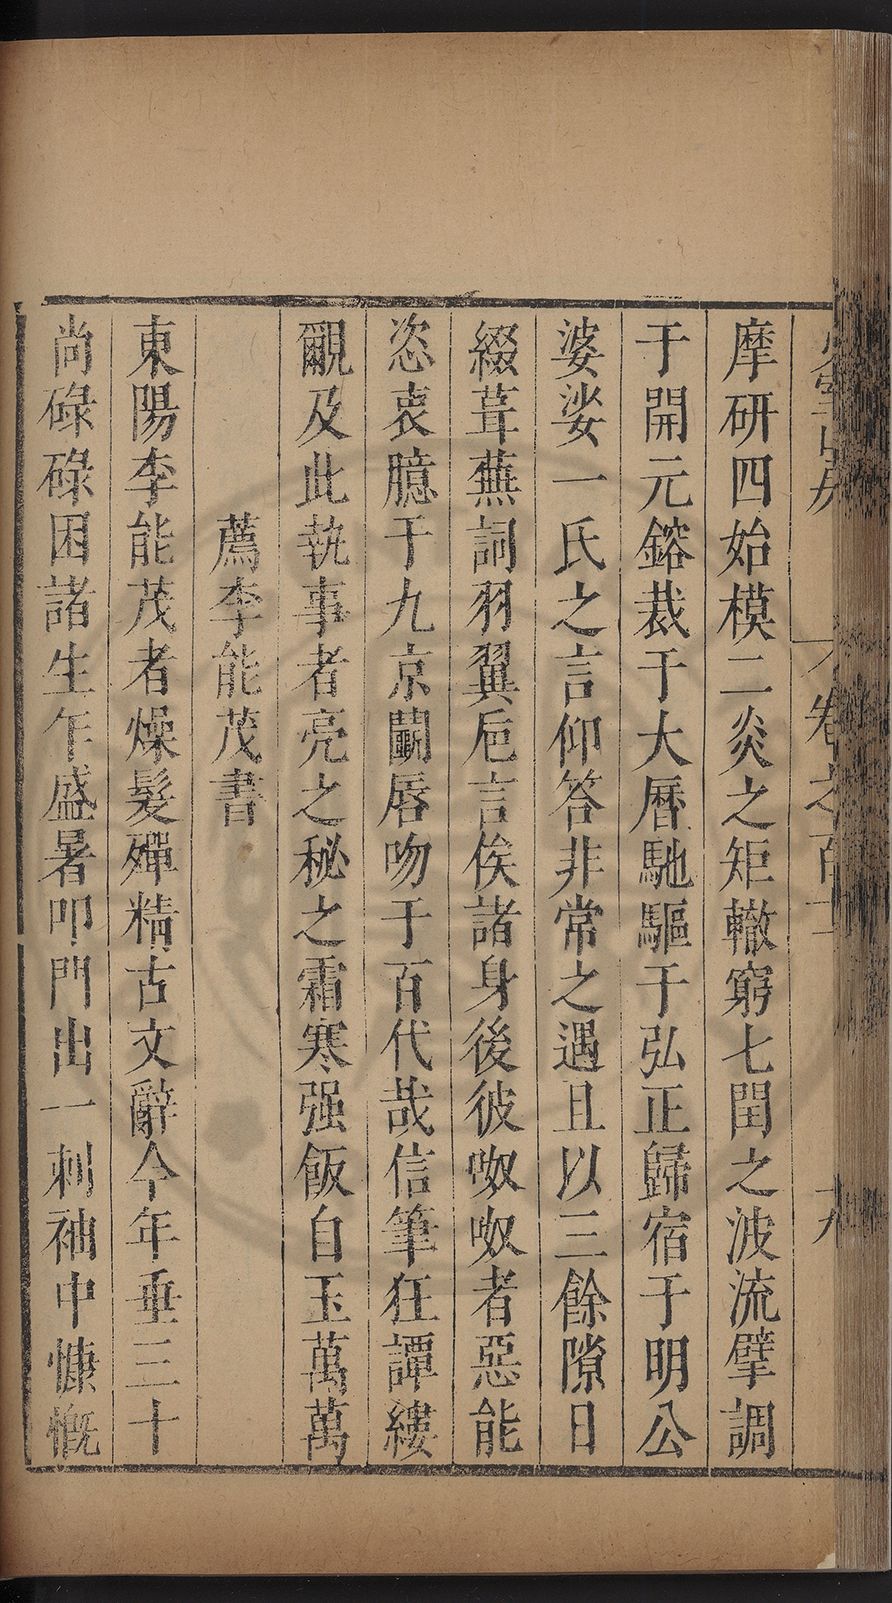 卷之百十
十九
摩研四始模二炎之矩轍窮七閏之波流擘調
于開元鎔裁于大曆馳驅于弘正歸宿于明公
婆娑一氏之言仰答非常之遇且以三餘隙日
綴葺蕪詞羽翼巵言俟諸身後彼呶呶者惡能
恣衷臆于九京鬭唇吻于百代哉信筆狂譚縷
覼及此執事者亮之秘之霜寒强飯自玉萬萬
薦李能茂書
東陽李能茂者燥髮殫精古文辭今年垂三十
尚碌碌困諸生乍盛暑叩門出一刺袖中慷慨